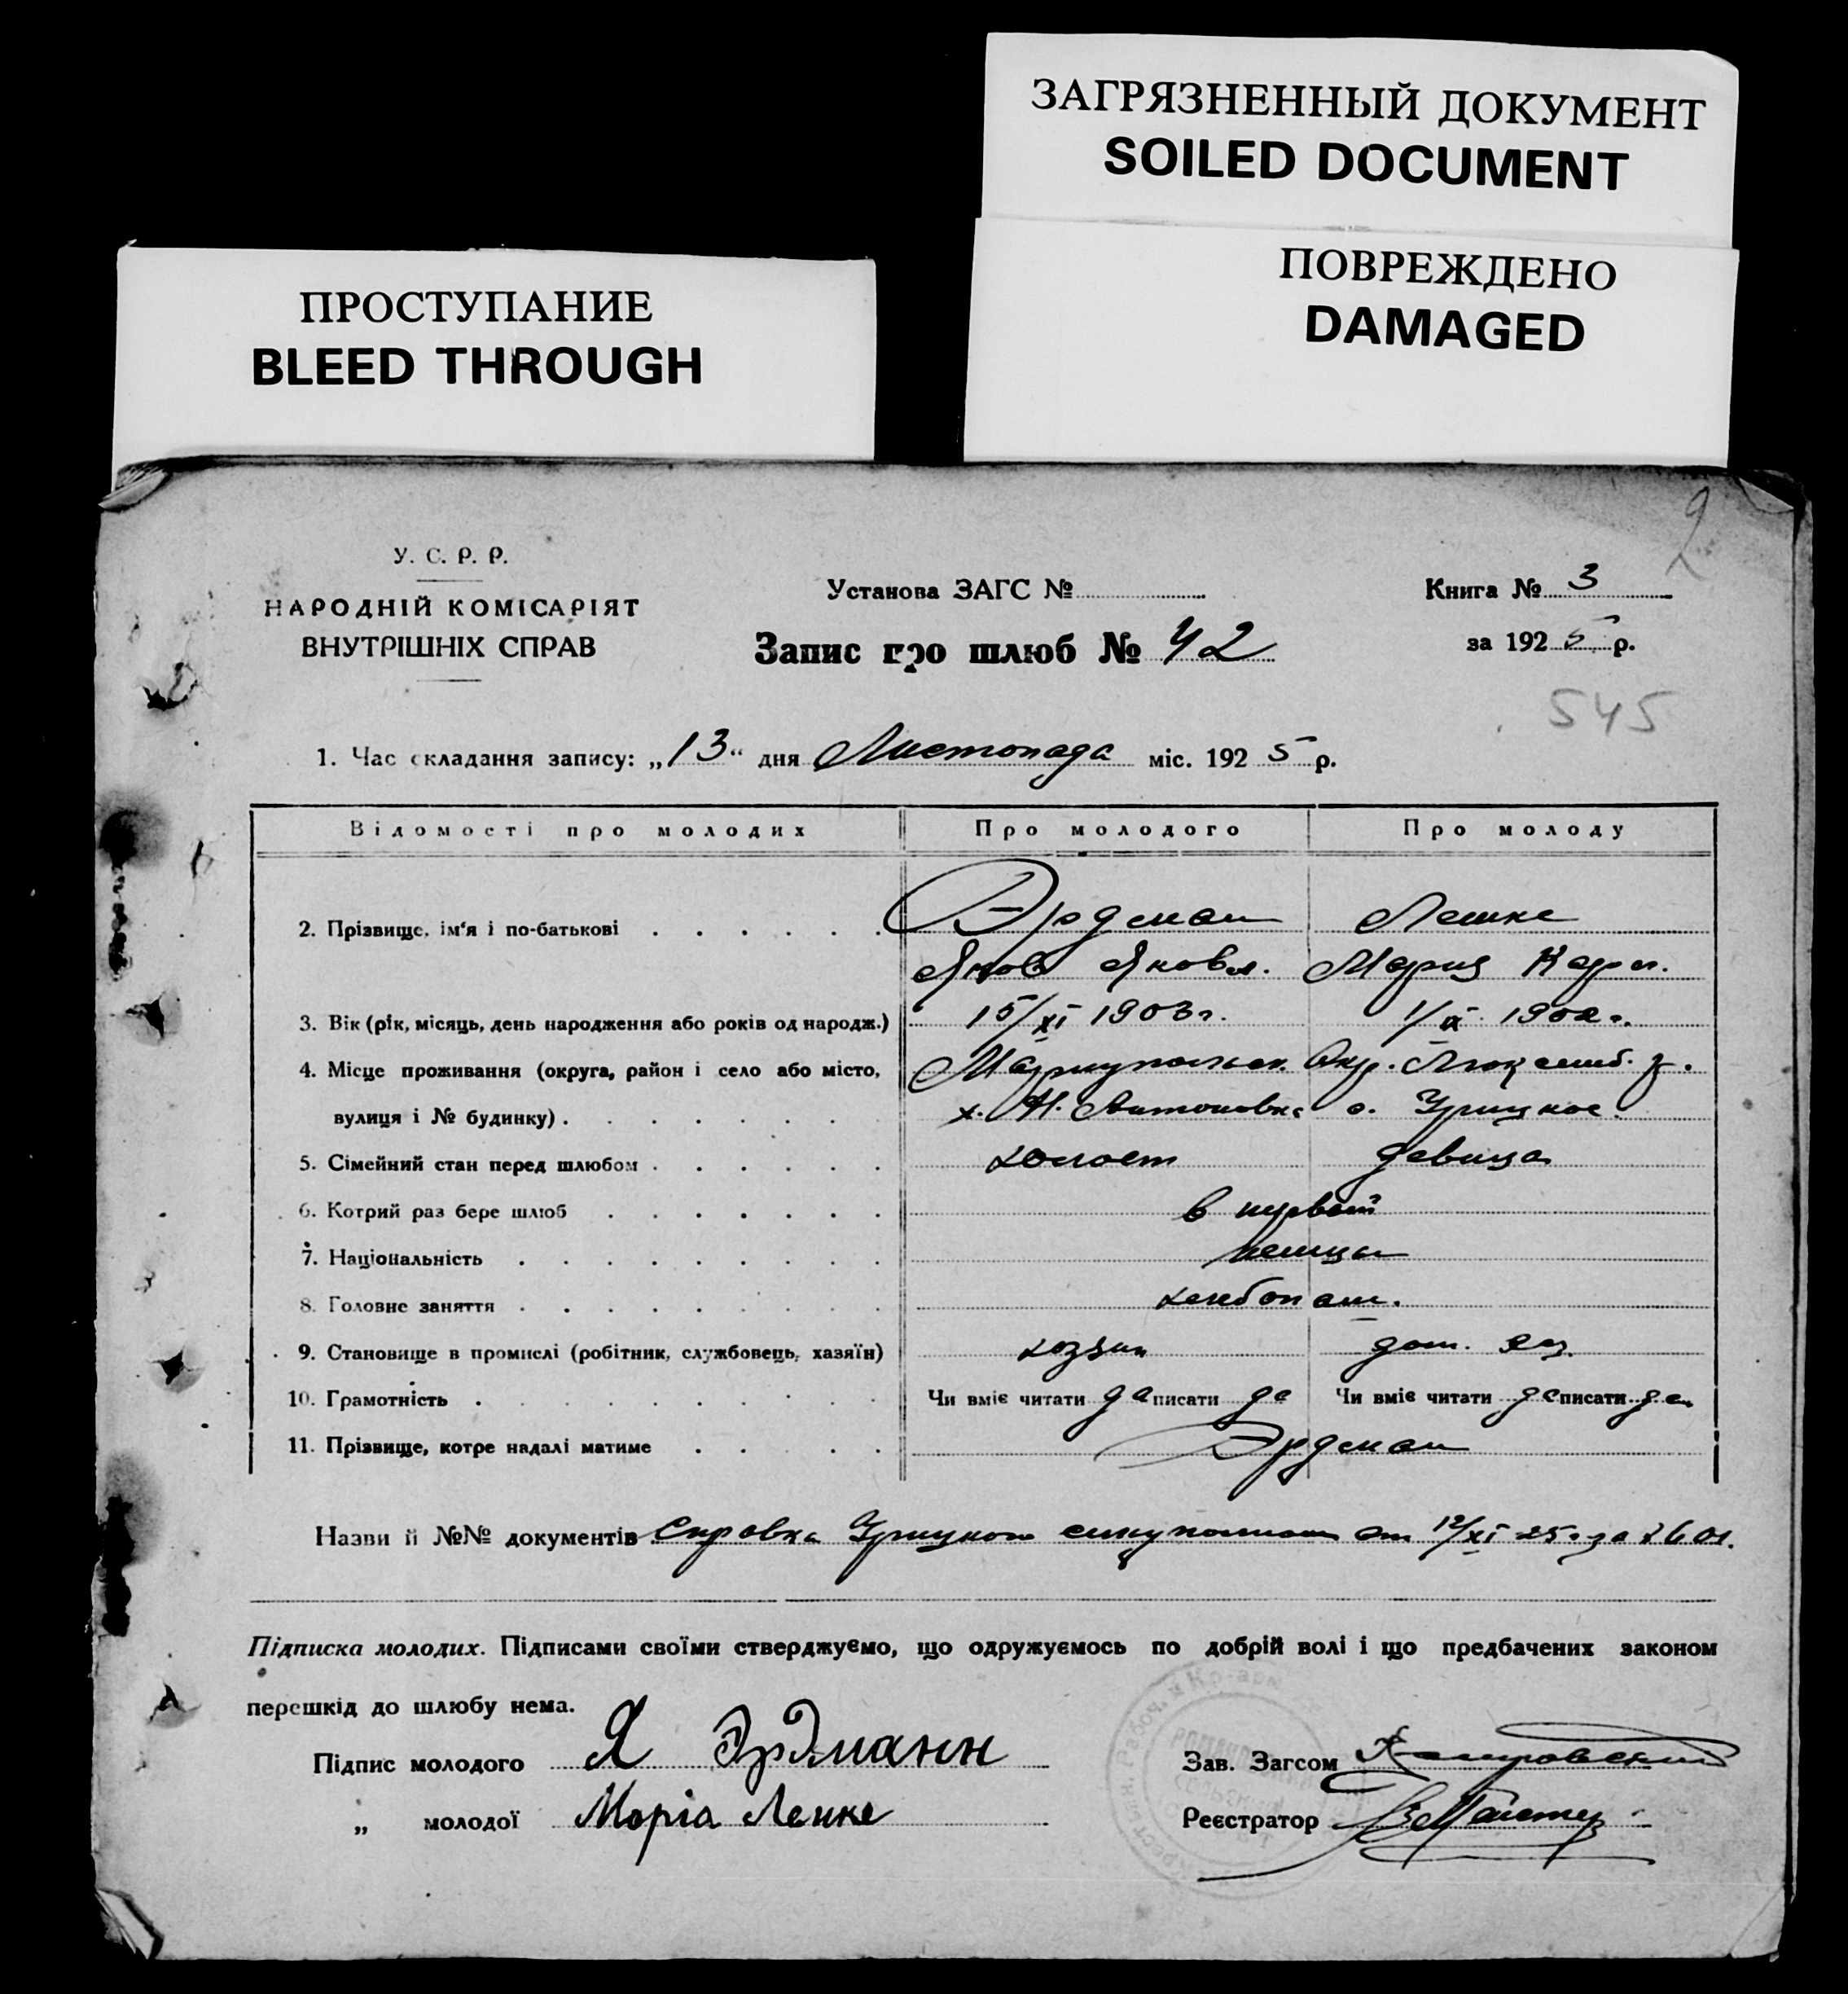 ЗАГРЯЗНЕННЫЙ ДОКУМЕНТ
SOILED DOCUMENT
ПОВРЕЖДЕНО
DAMAGED
ПРОСТУПАНИЕ
BLEED THROUGH
2
У. С. Р. Р.
НАРОДНІЙ КОМІСАРІЯТ
ВНУТРІШНІХ СПРАВ
Установа ЗАГС №
Запис про шлюб № 42
Книга № 3
за 1925 р.
545
1. Час складання запису: „13“ дня Листопада міс. 1925 р.
Відомості про молодих Про молодого Про молоду
2. Прізвище, ім'я і по-батькові Эрдман Лемке
Яков Яковл. Мария Карл.
3. Вік (рік, місяць, день народження або років од народж.) 15/XI 1903 г. 1/IX 1902 г.
4. Місце проживання (округа, район і село або місто, Мариупольск. Окр. Люксемб. р.
вулиця і № будинку) х. Н. Антоновка с. Урицкое
5. Сімейний стан перед шлюбом холост девица
6. Котрий раз бере шлюб в первый
7. Національність немцы
8. Головне заняття хлебопаш.
9. Становище в промислі (робітник, службовець, хазяїн) хозяин дом. хоз.
10. Грамотність Чи вміє читати да писати да Чи вміє читати да писати да
11. Прізвище, котре надалі матиме Эрдман
Назви й №№ документів Справка Урицкого от 12/XI 25 г за
Підписка молодих. Підписами своїми стверджуємо, що одружуємось по добрій волі і що предбачених законом
перешкід до шлюбу нема.
Підпис молодого Я Эрдманн
„ молодої Моріа Лемке
Зав. Загсом
Реєстратор